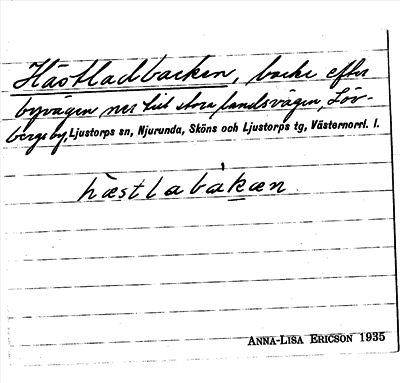 Hästladbacken, backe efter
byvägen ner till stora landsvägen, Löv-
bergs by, Ljustorps sn, Njurunda, Sköns och Ljustorps tg, Västernorrl. l.
hæstlabakæn
ANNA-LISA ERICSON 1935